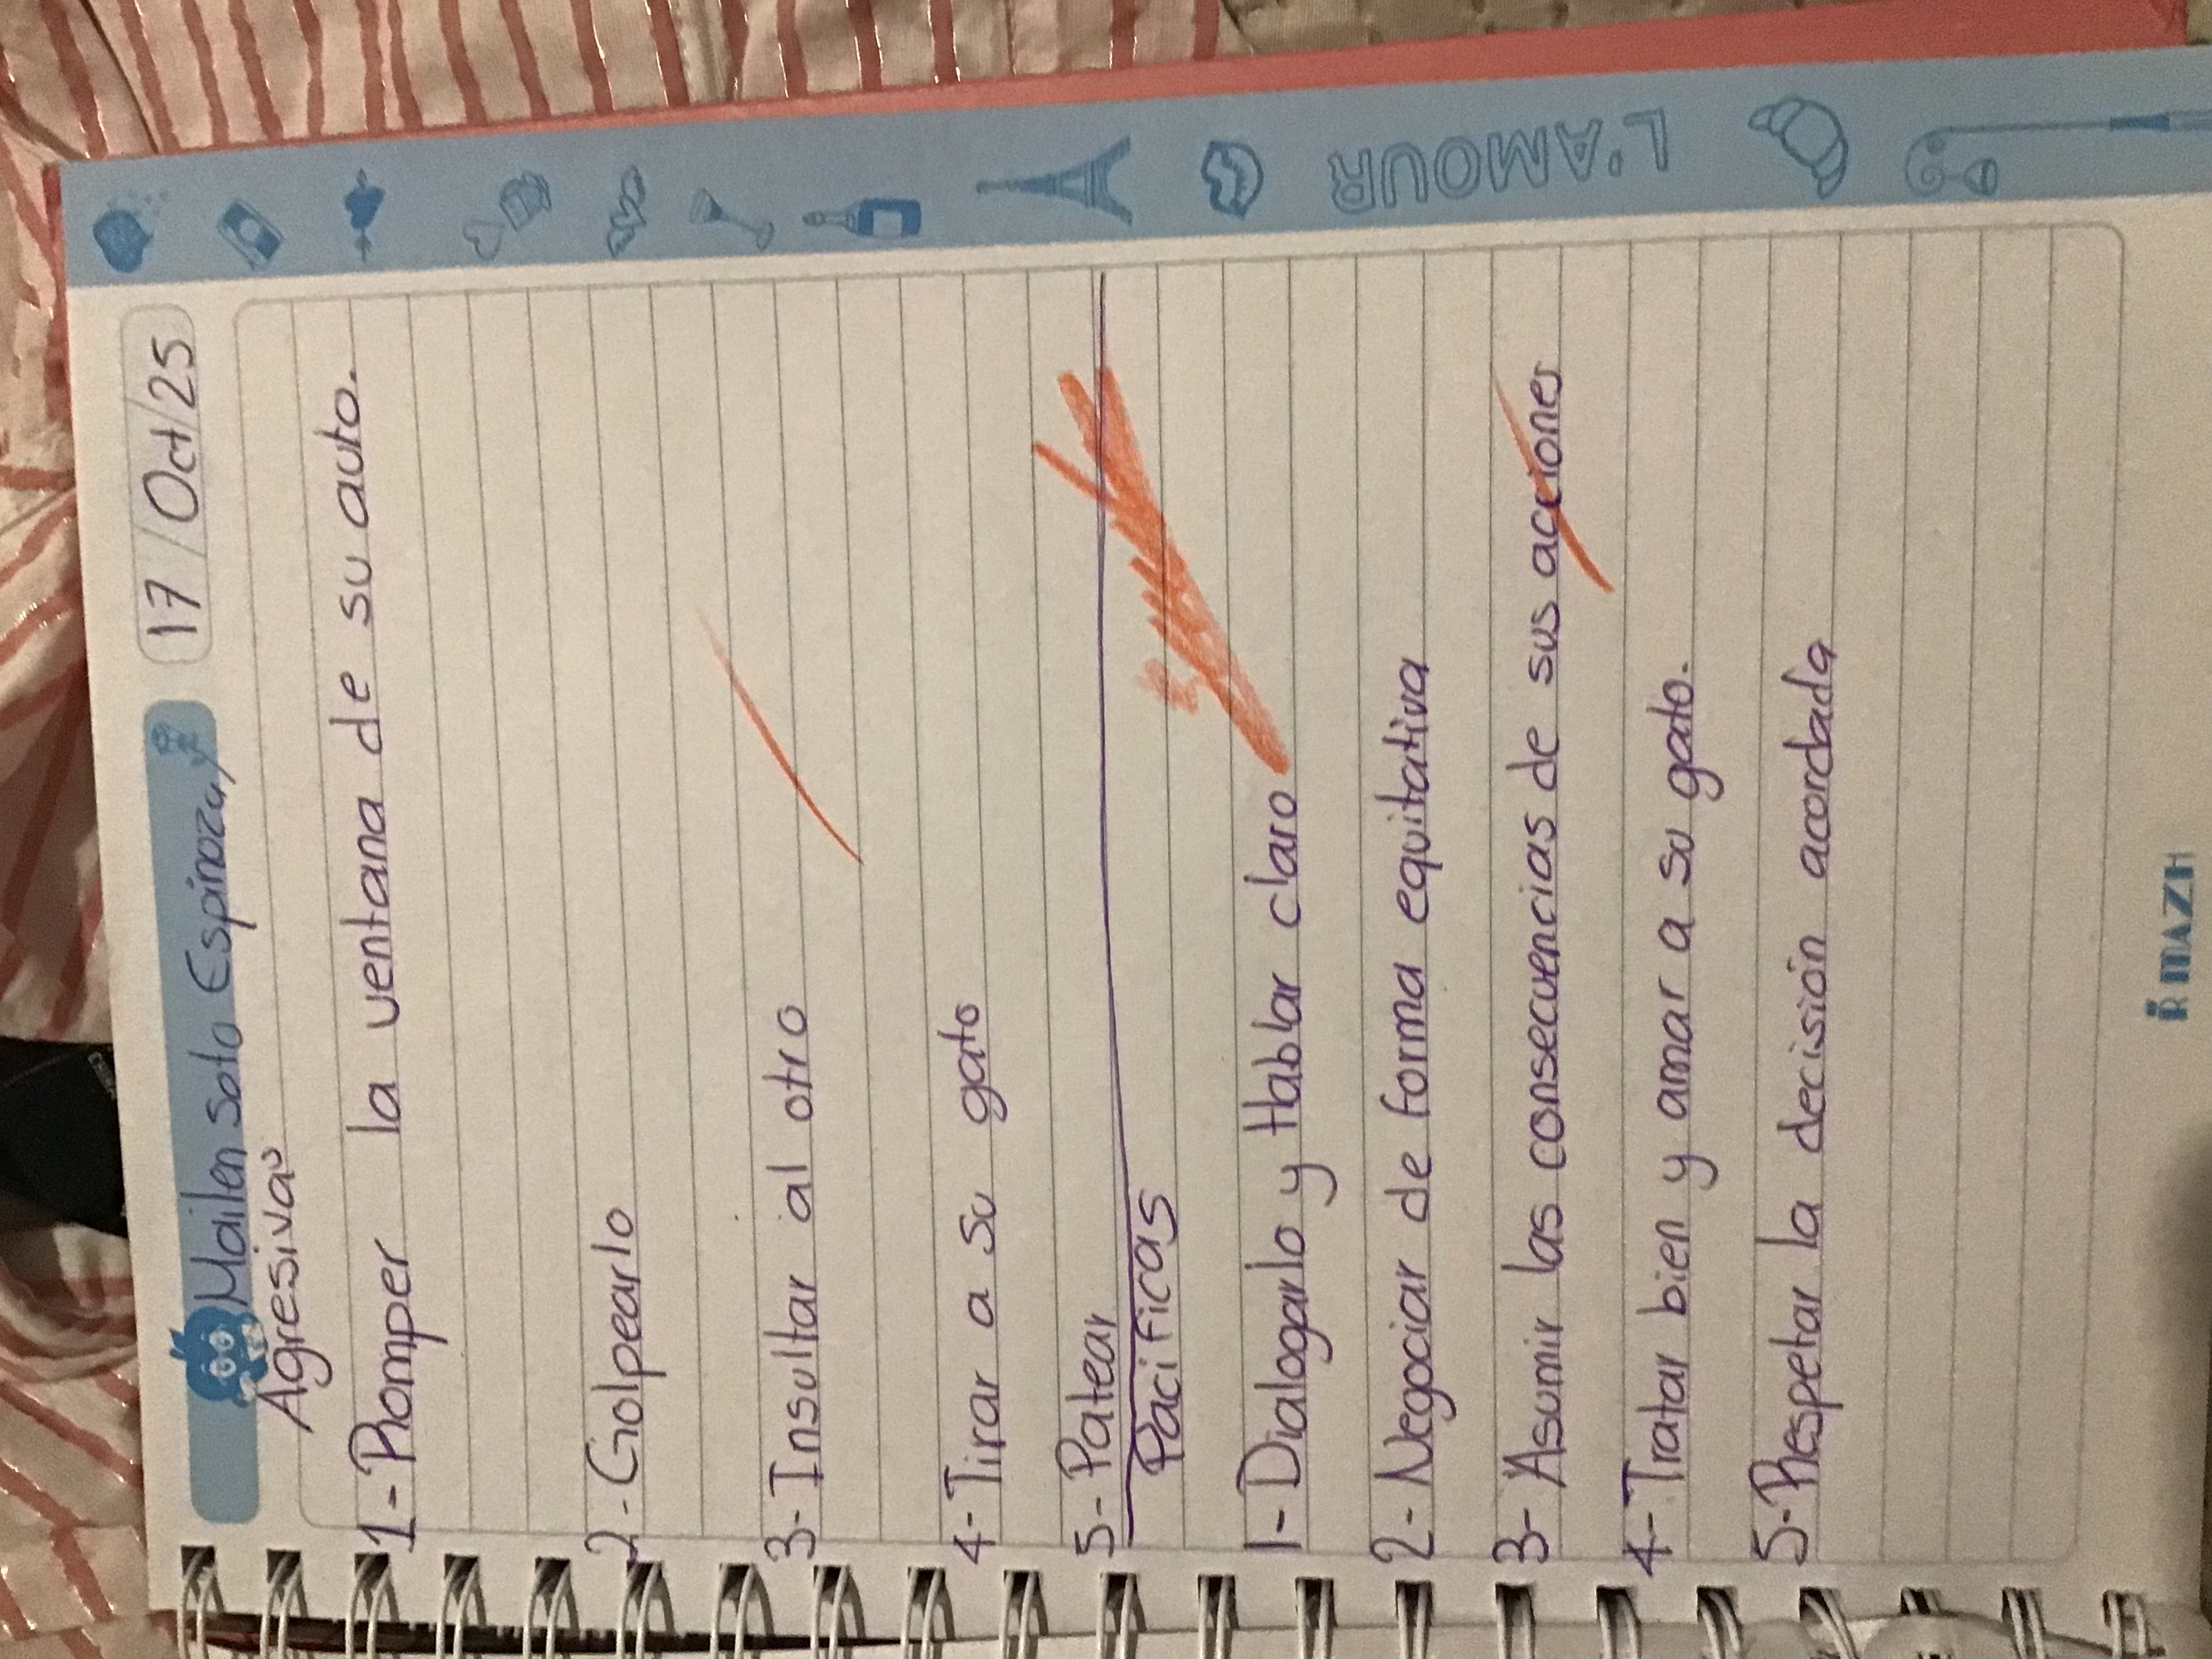 Mailen Soto Espinoza
17/Oct/25
Agresivas
1-Romper la ventana de su auto.
2-Golpearlo
3-Insultar al otro
4-Tirar a su gato
5-Patear
Pacificas
1-Dialogarlo y Hablar claro
2-Negociar de forma equitativa
3-Asumir las consecuencias de sus acciones
4-Tratar bien y amar a su gato.
5-Respetar la decisión acordada
L'AMOUR
MAZH